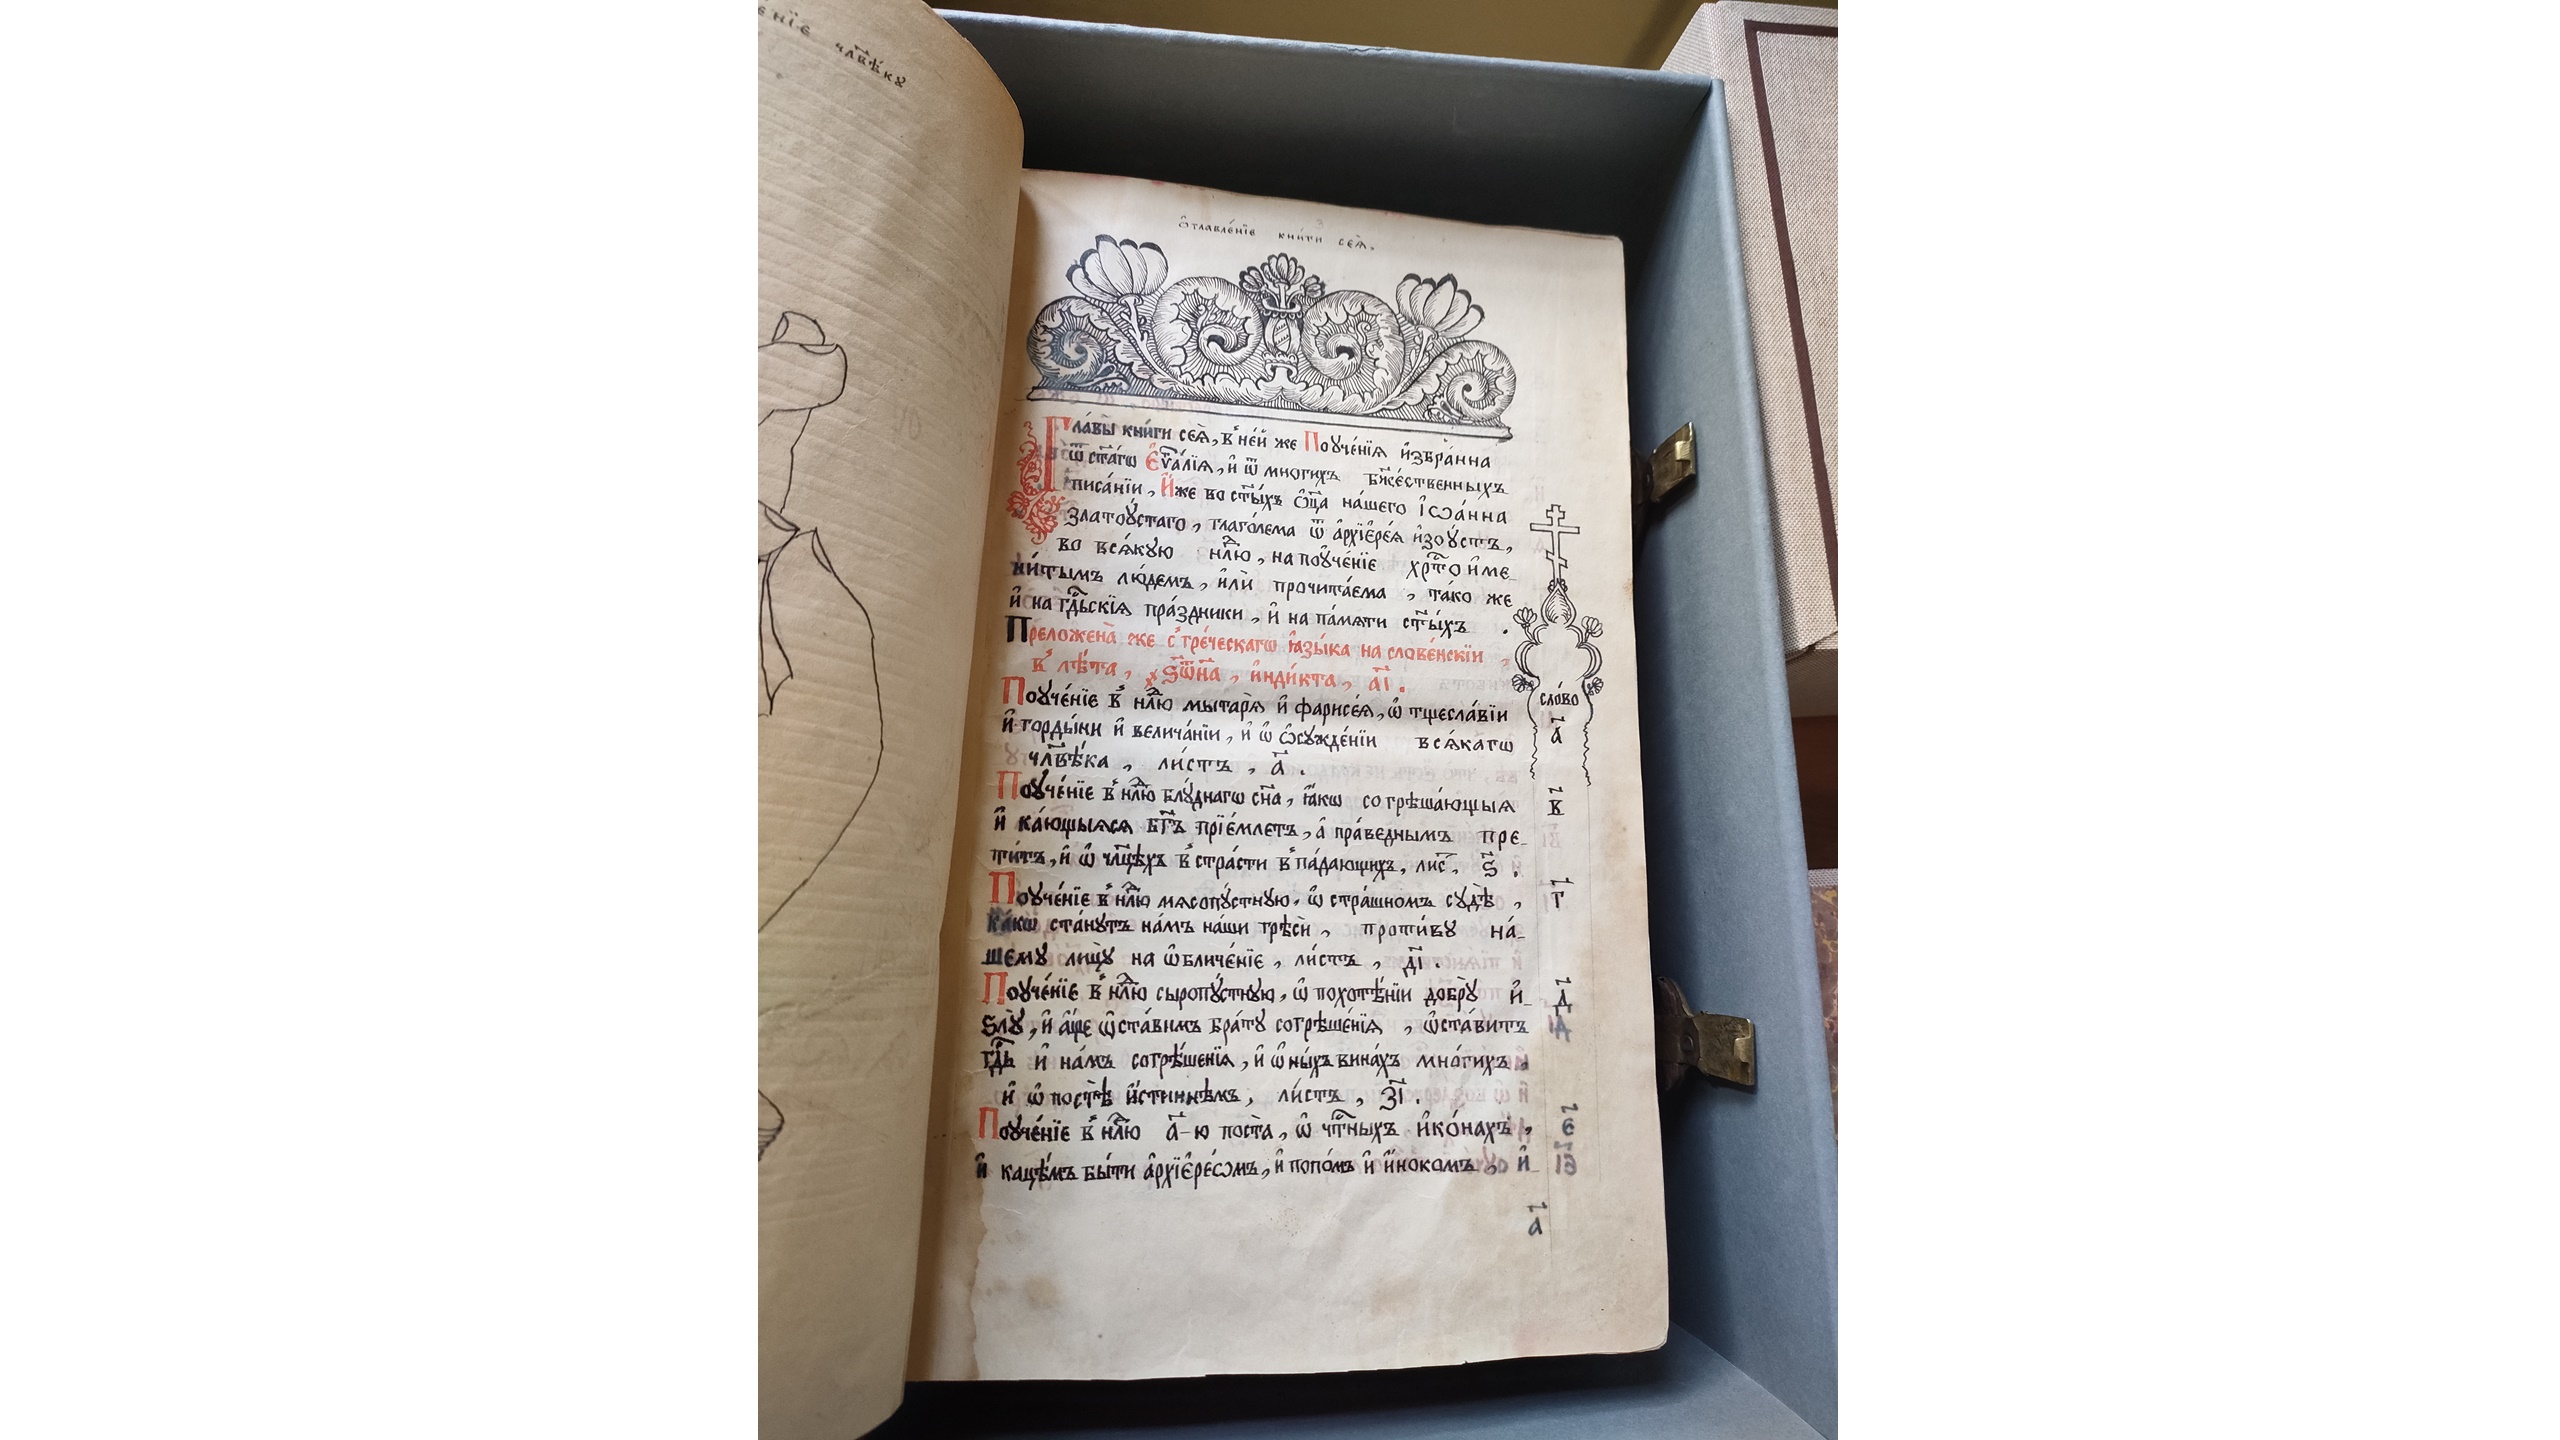 енїе члв҃ѣкꙋ
Ѻ҆главле́нїе кни́ги сеѧ̀.
Главы̀ кни́ги сеѧ̀, в̾ не́й же Поꙋче́нїѧ и҆збра́нна
ѿ ст҃а́гѡ Є҆ѵⷢ҇а́лїѧ, и҆ ѿ многихъ бж҃е́ственныхъ
писа́нїи, И҆́же во ст҃ы́хъ ѻ҆ц҃а̀ на́шего І҆ѡа́нна
Златоꙋ́стаго, глаго́лема ѿ а҆рхїє҆ре́ѧ и҆зоꙋ́стъ,
во всѧ́кꙋю нлⷣю, на поꙋче́нїе хрⷭ҇то и҆ме_
ни́тымъ лю́демъ, и҆лѝ прочита́ема, тако же
и҆ на гдⷭ҇ьскїѧ пра́здники, и҆ на па́мѧти ст҃ы́хъ .
Преложена̀ же с̾ гре́ческагѡ ꙗ҆зы́ка на слове́нскїи,
в̾ лѣ́та, ҂ѕѿн҃а, и҆нди́кта, а҃і.
Поꙋче́нїе в̾ нлⷣю мытарѧ̀ и҆ фарисе́ѧ, ѡ҆ тщесла́вїи
и҆ горды́ни и҆ велича́нїи, и҆ ѡ ѡ҆сꙋжде́нїи всѧ́кагѡ
члв҃ѣ́ка, ли́стъ, а҃.
сло́во
а҃
Поꙋче́нїе в̾ нлⷣю блꙋ́днагѡ сн҃а, ꙗ҆́кѡ согрѣша́ющыѧ
в҃
и҆ ка́ющыѧсѧ бг҃ъ прїе́млетъ, а҆ пра́веднымъ пре_
ти́тъ, и҆ ѡ҆ члц҃ѣхъ в̾ стра́сти в̾па́дающихъ, лис, ѕ҃.
Поꙋче́нїе в̾ нлⷣю мѧсопꙋ́стнꙋю, ѡ҆ стра́шномъ сꙋдѣ̀,
г҃
ка́кѡ ста́нꙋтъ на́мъ на́ши грѣсѝ, проти́вꙋ на́_
шемꙋ лицꙋ̀ на ѡ҆бличе́нїе, ли́стъ, д҃і.
Поꙋче́нїе в̾ нлⷣю сыропꙋ́стнꙋю, ѡ҆ похотѣ́нїи добрꙋ̀ и҆_
д҃
ѕлꙋ̀, и҆ а҆́ще ѡ҆ста́вимъ бра́тꙋ согрѣше́нїѧ, ѡ҆ста́витъ
гдⷭ҇ь и҆ на́мъ согрѣ́шенїѧ, и҆ ѡ҆ ны́хъ вина́хъ мно́гихъ,
и҆ ѡ҆ постѣ̀ и҆́стиннѣмъ, ли́стъ, з҃і.
Поꙋче́нїе в̾ нлⷣю а҃-ю поста̀, ѡ҆ чтⷭ҇ныхъ и҆ко́нахъ,
є҃
и҆ кацѣ́мъ бы́ти а҆рхїє҆ре́ѡмъ, и҆ попо́мъ и҆ и҆́нокомъ, и҆_
а҃